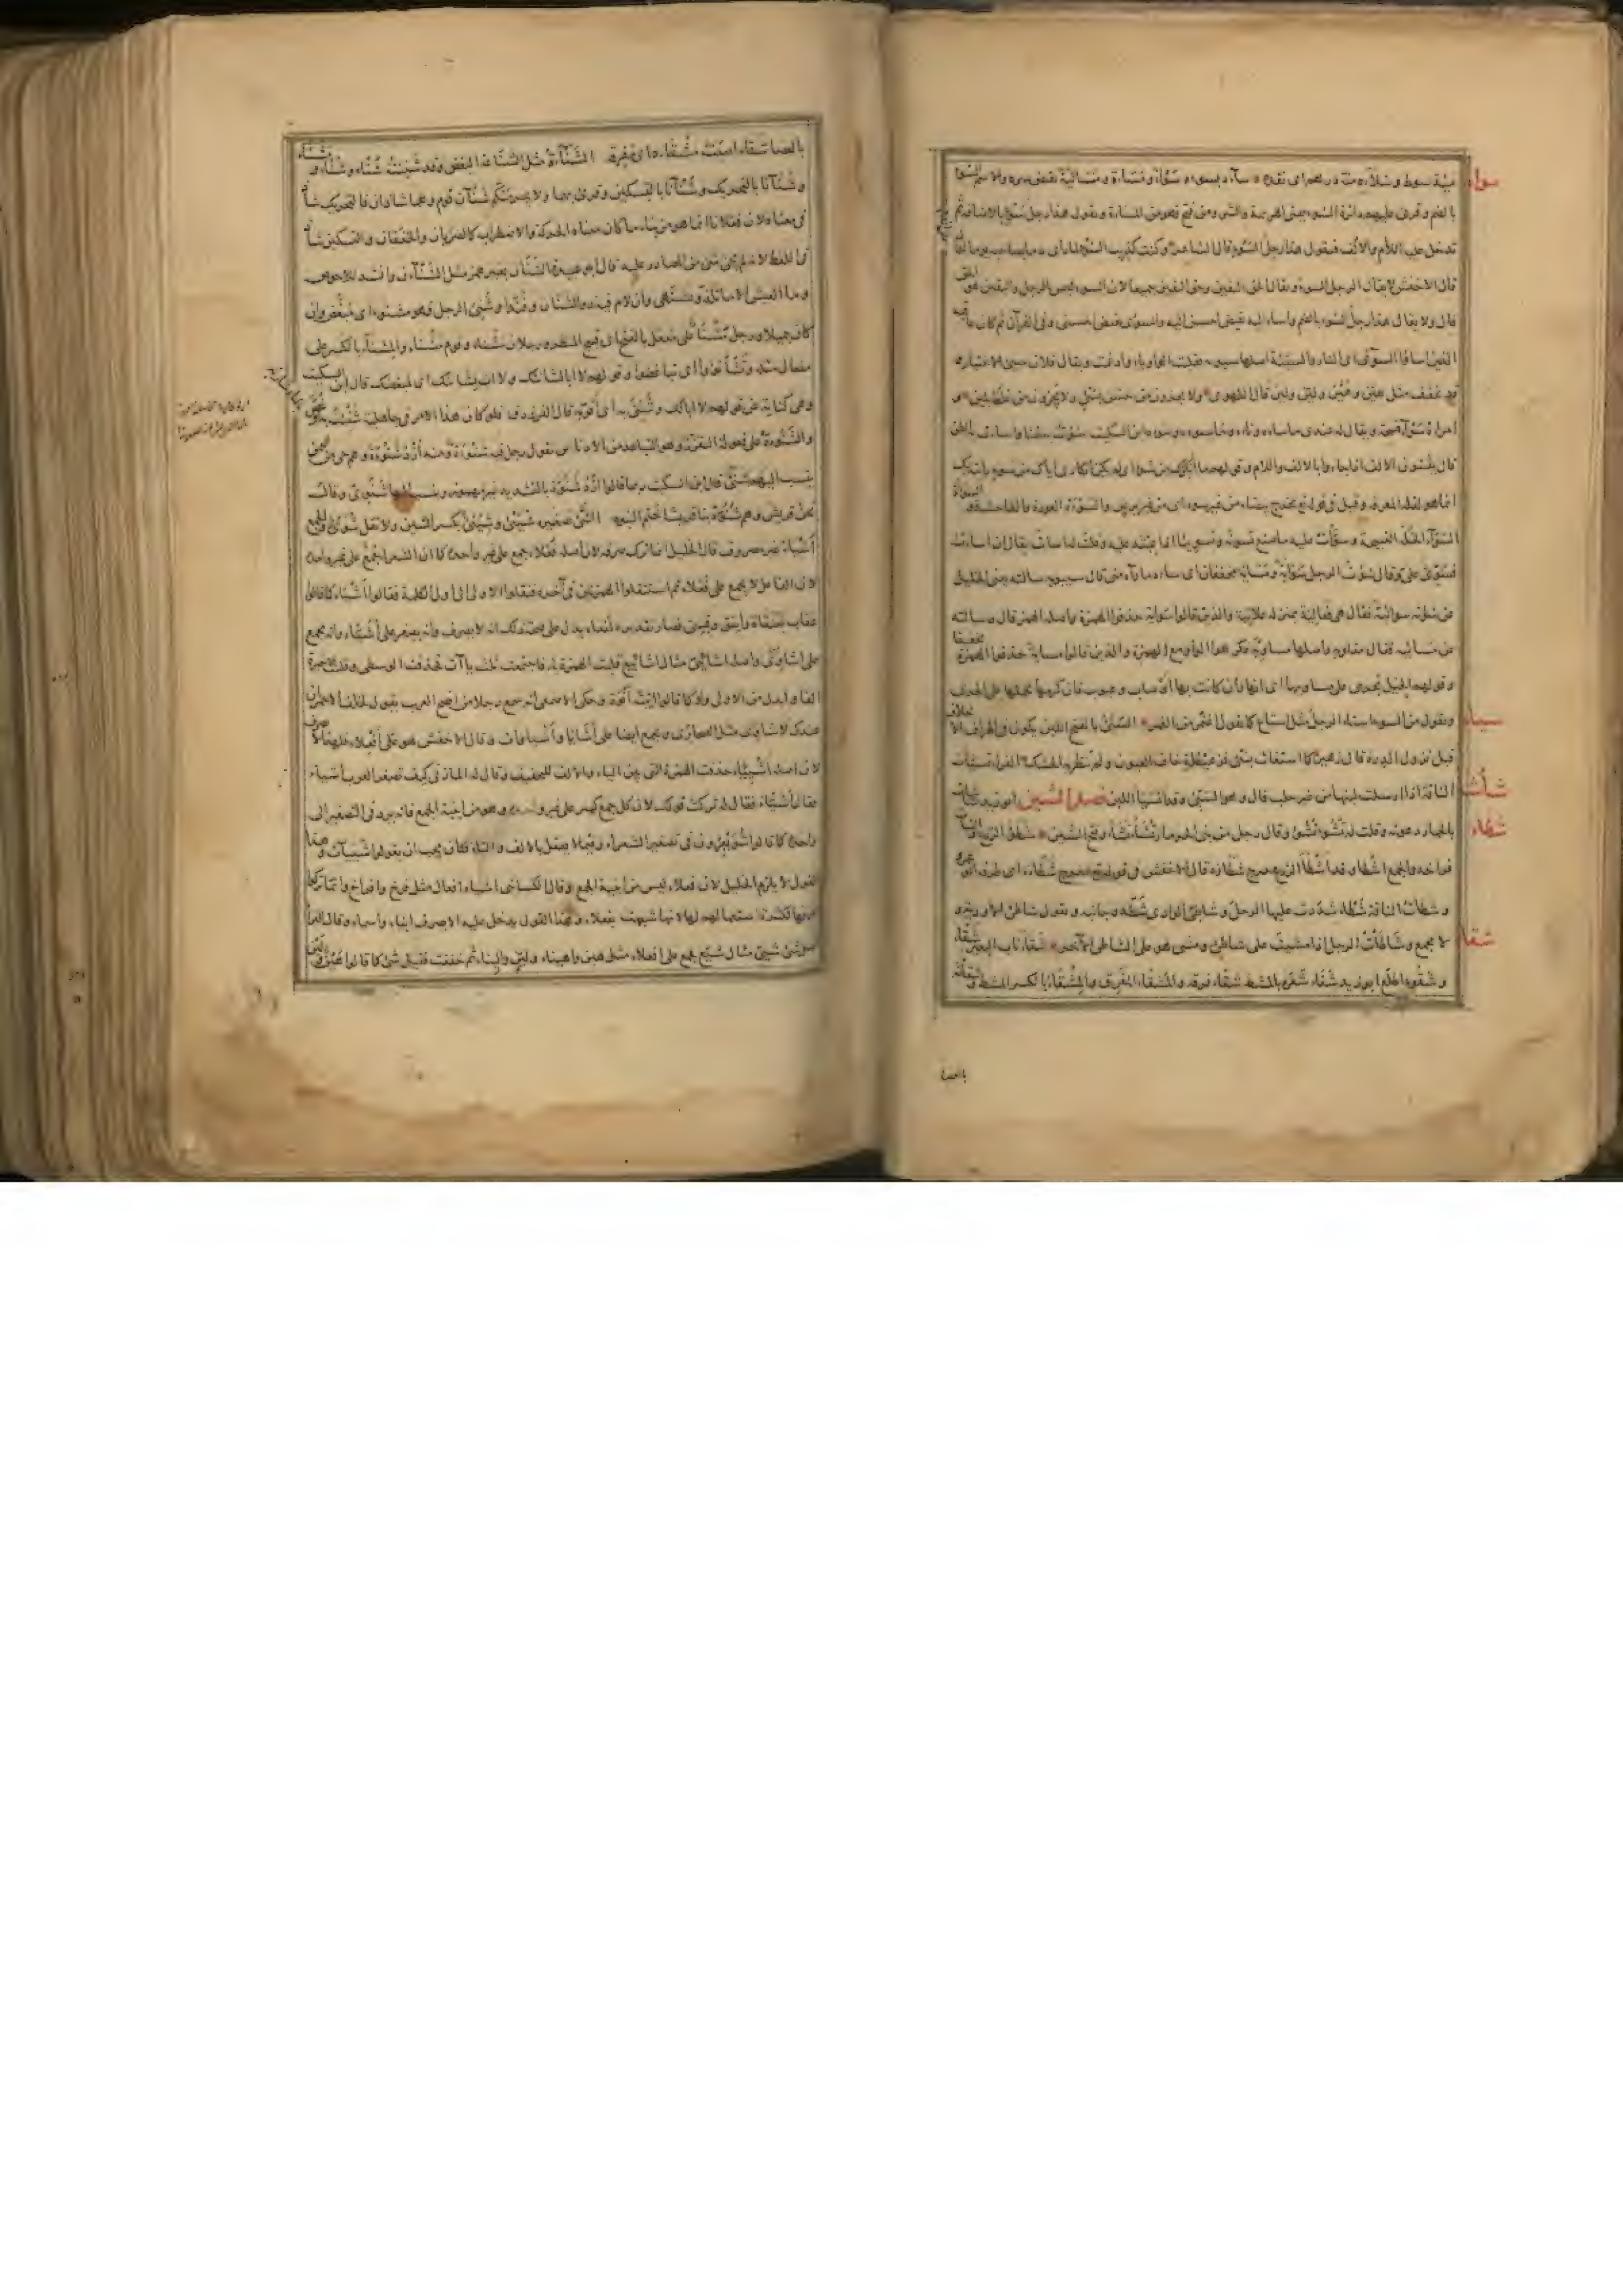 سوا
مئة سوط و سلأه مئة درهم ای نقده ساءه يسوءه سوأ و مساءة و مسائية نقيض سره والاسم السوء
بالضم و قرئ عليهم دائرة السوء يعنی الهزيمة والشر ومن فتح فهو من المساءة و تقول هذا رجل سوء بالاضافة ثم
تدخل عليه اللام والالف فتقول هذا رجل السوء قال الشاعر وكنت كذئب السوء لما رای
قال الاخفش لا يقال الرجل السوء و يقال الحق اليقين وحق اليقين جميعا لان السوء ليس بالرجل واليقين هو الحق
قال ولا يقال هذا رجل السوء بالضم واساء اليه نقيض احسن اليه والسوءی نقيض الحسنی وفی القرآن ثم كان عاقبة
الذين اساؤا السوءی ای النار والسيئة اصلها سيوئة فقلبت الواو ياء وادغمت ويقال فلان سیئ الاختيار
قد يخفف مثل هين و هين ولين ولين قال الطهوی ولا يجزون من حسن بسیئ ولا يجزون من غلظ بلين
امرأة سوآء قبيحة و يقال له عندی ما ساءه وناءه وما يسوءه وينوءه ابن السكيت سؤت به ظنا واسأت به الظن
قال يثبتون الالف اذا جاؤا بالالف واللام وقولهم ما انكرك من سوء ای لم يكن انكاری اياك من سوء رأيته بك
انما هو لقلة المعرفة وقيل فی قوله تع تخرج بيضاء من غير سوء ای من غير برص والسوءة العورة والفاحشة
السوآء الخلة القبيحة و سوأت عليه ما صنع تسوئة وتسويئا اذا عبته عليه وقلت له اسأت يقال ان اسأت
فسوئ علی و قال سؤت الرجل سواية و مساية مخففان ای ساءه ما رآه منی قال سيبويه سألته يعنی الخليل
عن سؤته سوائية فقال هی فعالية بمنزلة علانية والذين قالوا سواية حذفوا الهمزة واصله الهمز قال وسألته
عن مسائية فقال مقلوبة واصلها مساوئة فكرهوا الواو مع الهمزة والذين قالوا مساية حذفوا الهمزة تخفيفا
وقولهم الخيل تجری علی مساويها ای انها وان كانت بها اوصاب وعيوب فان كرمها يحملها علی الجری
سيا
وتقول من السوء استاء الرجل مثل استاع كما تقول اغتم من الغم السیء بالفتح اللبن يكون فی اطراف الاخلاف
قبل نزول الدرة قال زهير كما استغاث بسیء فز غيطلة خاف العيون ولم ينظر به الحشك الفراء تسيأت
شأشأ
الناقة اذا ارسلت لبنها من غير حلب قال و هو السیء وقد انسيأ اللبن فصل الشين ابو زيد شأشأت
شطاء
بالحمار دعوته وقلت له تشؤ تشؤ وقال رجل من بنی الحرماز تشأ تشأ وفتح الشين شطء الزرع والنبات
فراخه والجمع اشطاء وقد اشطأ الزرع خرج شطأه قال الاخفش فی قوله تع اخرج شطأه ای طرفه ابو عمرو
و شطأت الناقة شطأ شددت عليها الرحل و شاطئ الوادی شطه وجانبه و تقول شاطئ الاودية و
شقا
لا يجمع و شاطأت الرجل اذا مشيت علی شاطئ ومشی هو علی الشاطئ الآخر شقأ ناب البعير شقأ
و شقوءا طلع ابو زيد شقأ شعره بالمشط شقأ فرقه والمشقأ المفرق والمشقأ بالكسر المشط وشقأته
بالعصا
بالعصا شقأ اصبت مشقأه ای مفرقه الشناءة مثل الشناعة البغض وقد شنئته شنأ وشنأ و شنأ
و شنآنا بالتحريك و شنآنا بالتسكين وقد قرئ بهما ولا يجرمنكم شنآن قوم وهما شاذان فالتحريك شاذ
فی المعنا لان فعلان انما هو من بناء ما كان معناه الحركة والاضطراب كالضربان والخفقان والتسكين شاذ
فی اللفظ لانه لم يجئ شئ من المصادر عليه قال ابو عبيدة الشنان بغير همز مثل الشنآن وانشد للاحوص
وما العيش الا ما تلذ وتشتهی وان لام فيه ذو الشنان وفندا وشنئ الرجل فهو مشنوء ای مبغض وان
كان جميلا ورجل مشنأ علی مفعل بالفتح ای قبيح المنظر ورجلان مشنأ وقوم مشنأ والمشناء بالكسر علی
مفعال مثله و تشانؤا ای تباغضوا وقولهم لا ابا لشانئك ولا اب لشانئك ای لمبغضك قال ابن السكيت
وهی كناية عن قولهم لا ابا لك و شنئ به ای اقر به قال الفرزدق فلو كان هذا الامر فی جاهلية شنئت به
والشنوءة علی فعولة التقزز وهو التباعد من الادناس تقول رجل فيه شنوءة ومنه ازد شنوءة وهم حی من اليمن
ينسب اليهم شنئی قال ابن السكيت ربما قالوا ازد شنوة بالتشديد غير مهموز وينسب اليها شنوی وقال
نحن قريش وهم شنوة بنا قريشا ختم النبوه الشئ تصغيره شییء و شییء بكسر الشين ولا تقل شوی والجمع
اشياء غير مصروف قال الخليل انما ترك صرفه لان اصله فعلاء جمع علی غير واحده كما ان الشعراء جمع علی غير واحده
لان الفاعل لا يجمع علی فعلاء ثم استثقلوا الهمزتين فی آخره فنقلوا الاولی الی اول الكلمة فقالوا اشياء كما قالوا
عقاب بعنقاة وأينق وقسی فصار تقديره لفعاء يدل علی صحة ذلك انه لا يصرف وانه يصغر علی أشياء وانه يجمع
علی اشاوی واصله اشائی مثال اشاعيع قلبت الهمزة ياء فاجتمعت ثلث ياآت فحذفت الوسطی وقلبت الاخيرة
الفا وابدل من الاولی واو كما قالوا اتيته اتوة وحكی الاصمعی انه سمع رجلا من افصح العرب يقول لخلف الاحمر ان
عندك لاشاوی مثل الصحاری ويجمع ايضا علی اشايا و أشياوات وقال الاخفش هو علی أفعلاء فلهذا لا يصرف
لان اصله أشيئاء حذفت الهمزة التی بين الياء والالف للتخفيف وقال له المازنی كيف تصغر العرب أشياء
فقال أشياء فقال له تركت قولك لان كل جمع كسر علی غير واحده وهو من ابنية الجمع فانه يرد فی التصغير الی
واحده كما قالوا شويعرون فی تصغير الشعراء وفيما لا يعقل بالالف والتاء فكان يجب ان يقولوا شييآت وهذا
القول لا يلزم الخليل لان فعلاء ليس من ابنية الجمع وقال الكسائی اشياء افعال مثل فرخ وافراخ وانما تركوا
صرفها لكثرة استعمالهم لها لانها شبهت بفعلاء وهذا القول يدخل عليه الا يصرف ابناء واسماء وقال الفراء
اصل شئ شیئ مثال شيع فجمع علی افعلاء مثل هين واهيناء ولين واليناء ثم خفف فقيل شئ كما قالوا هين ولين